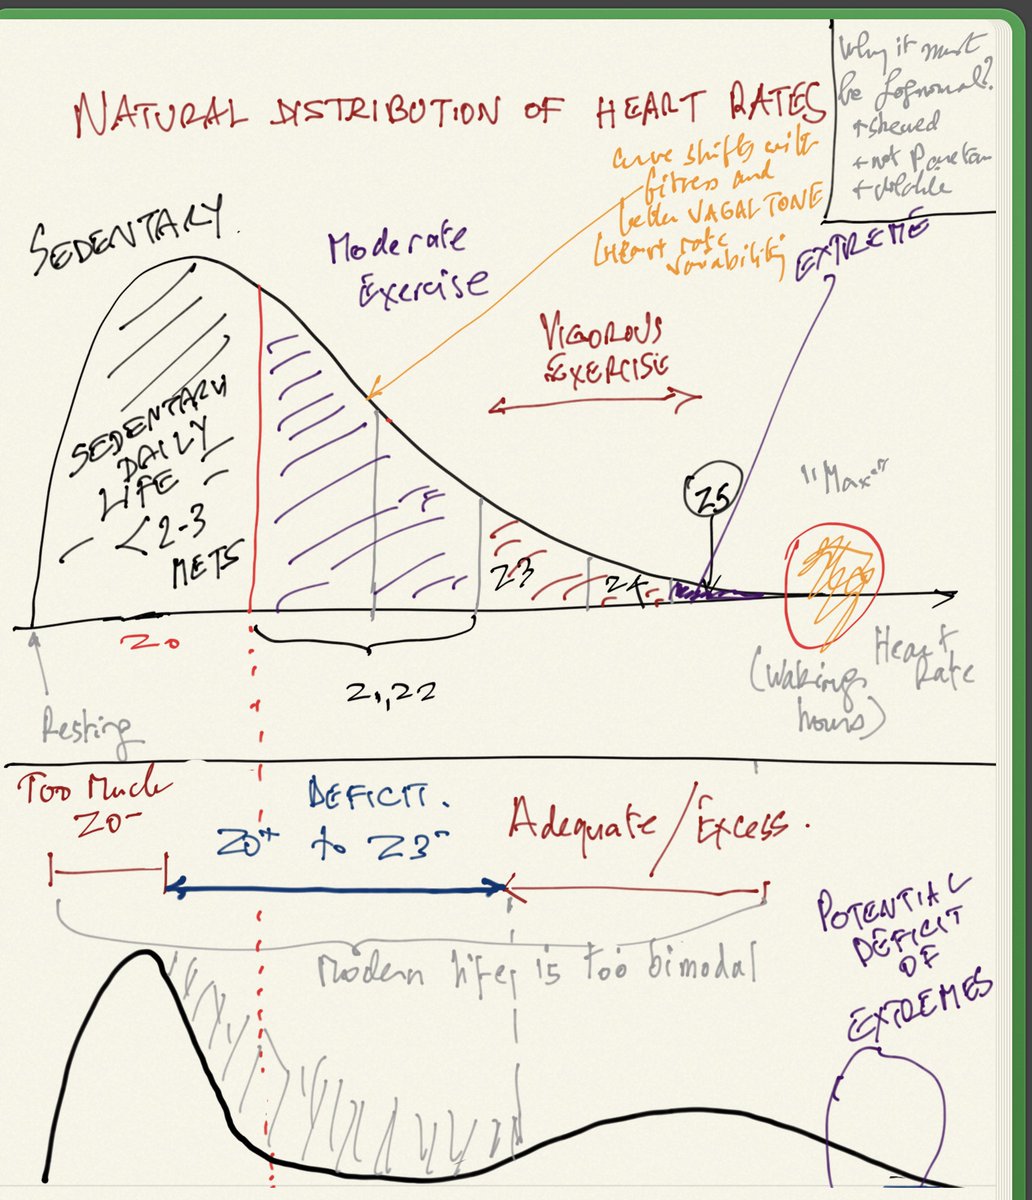 Why it must
be Lognormal?
skewed
not Paretan
NATURAL DISTRIBUTION OF HEART RATES
curve shifts with
fitness and
better VAGAL TONE
(Heart rate
variability)
SEDENTARY
Moderate
Exercise
EXTREME
VIGOROUS
EXERCISE
SEDENTARY
DAILY
LIFE
<2-3
METS
Z5
"Max"
Z3
Z4
Z0
Z1, Z2
Resting
(Waking
hours)
Heart
Rate
Too Much
Z0-
DEFICIT.
Z0+ to Z3-
Adequate/Excess.
Modern life is too bimodal
POTENTIAL
DEFICIT
OF
EXTREMES